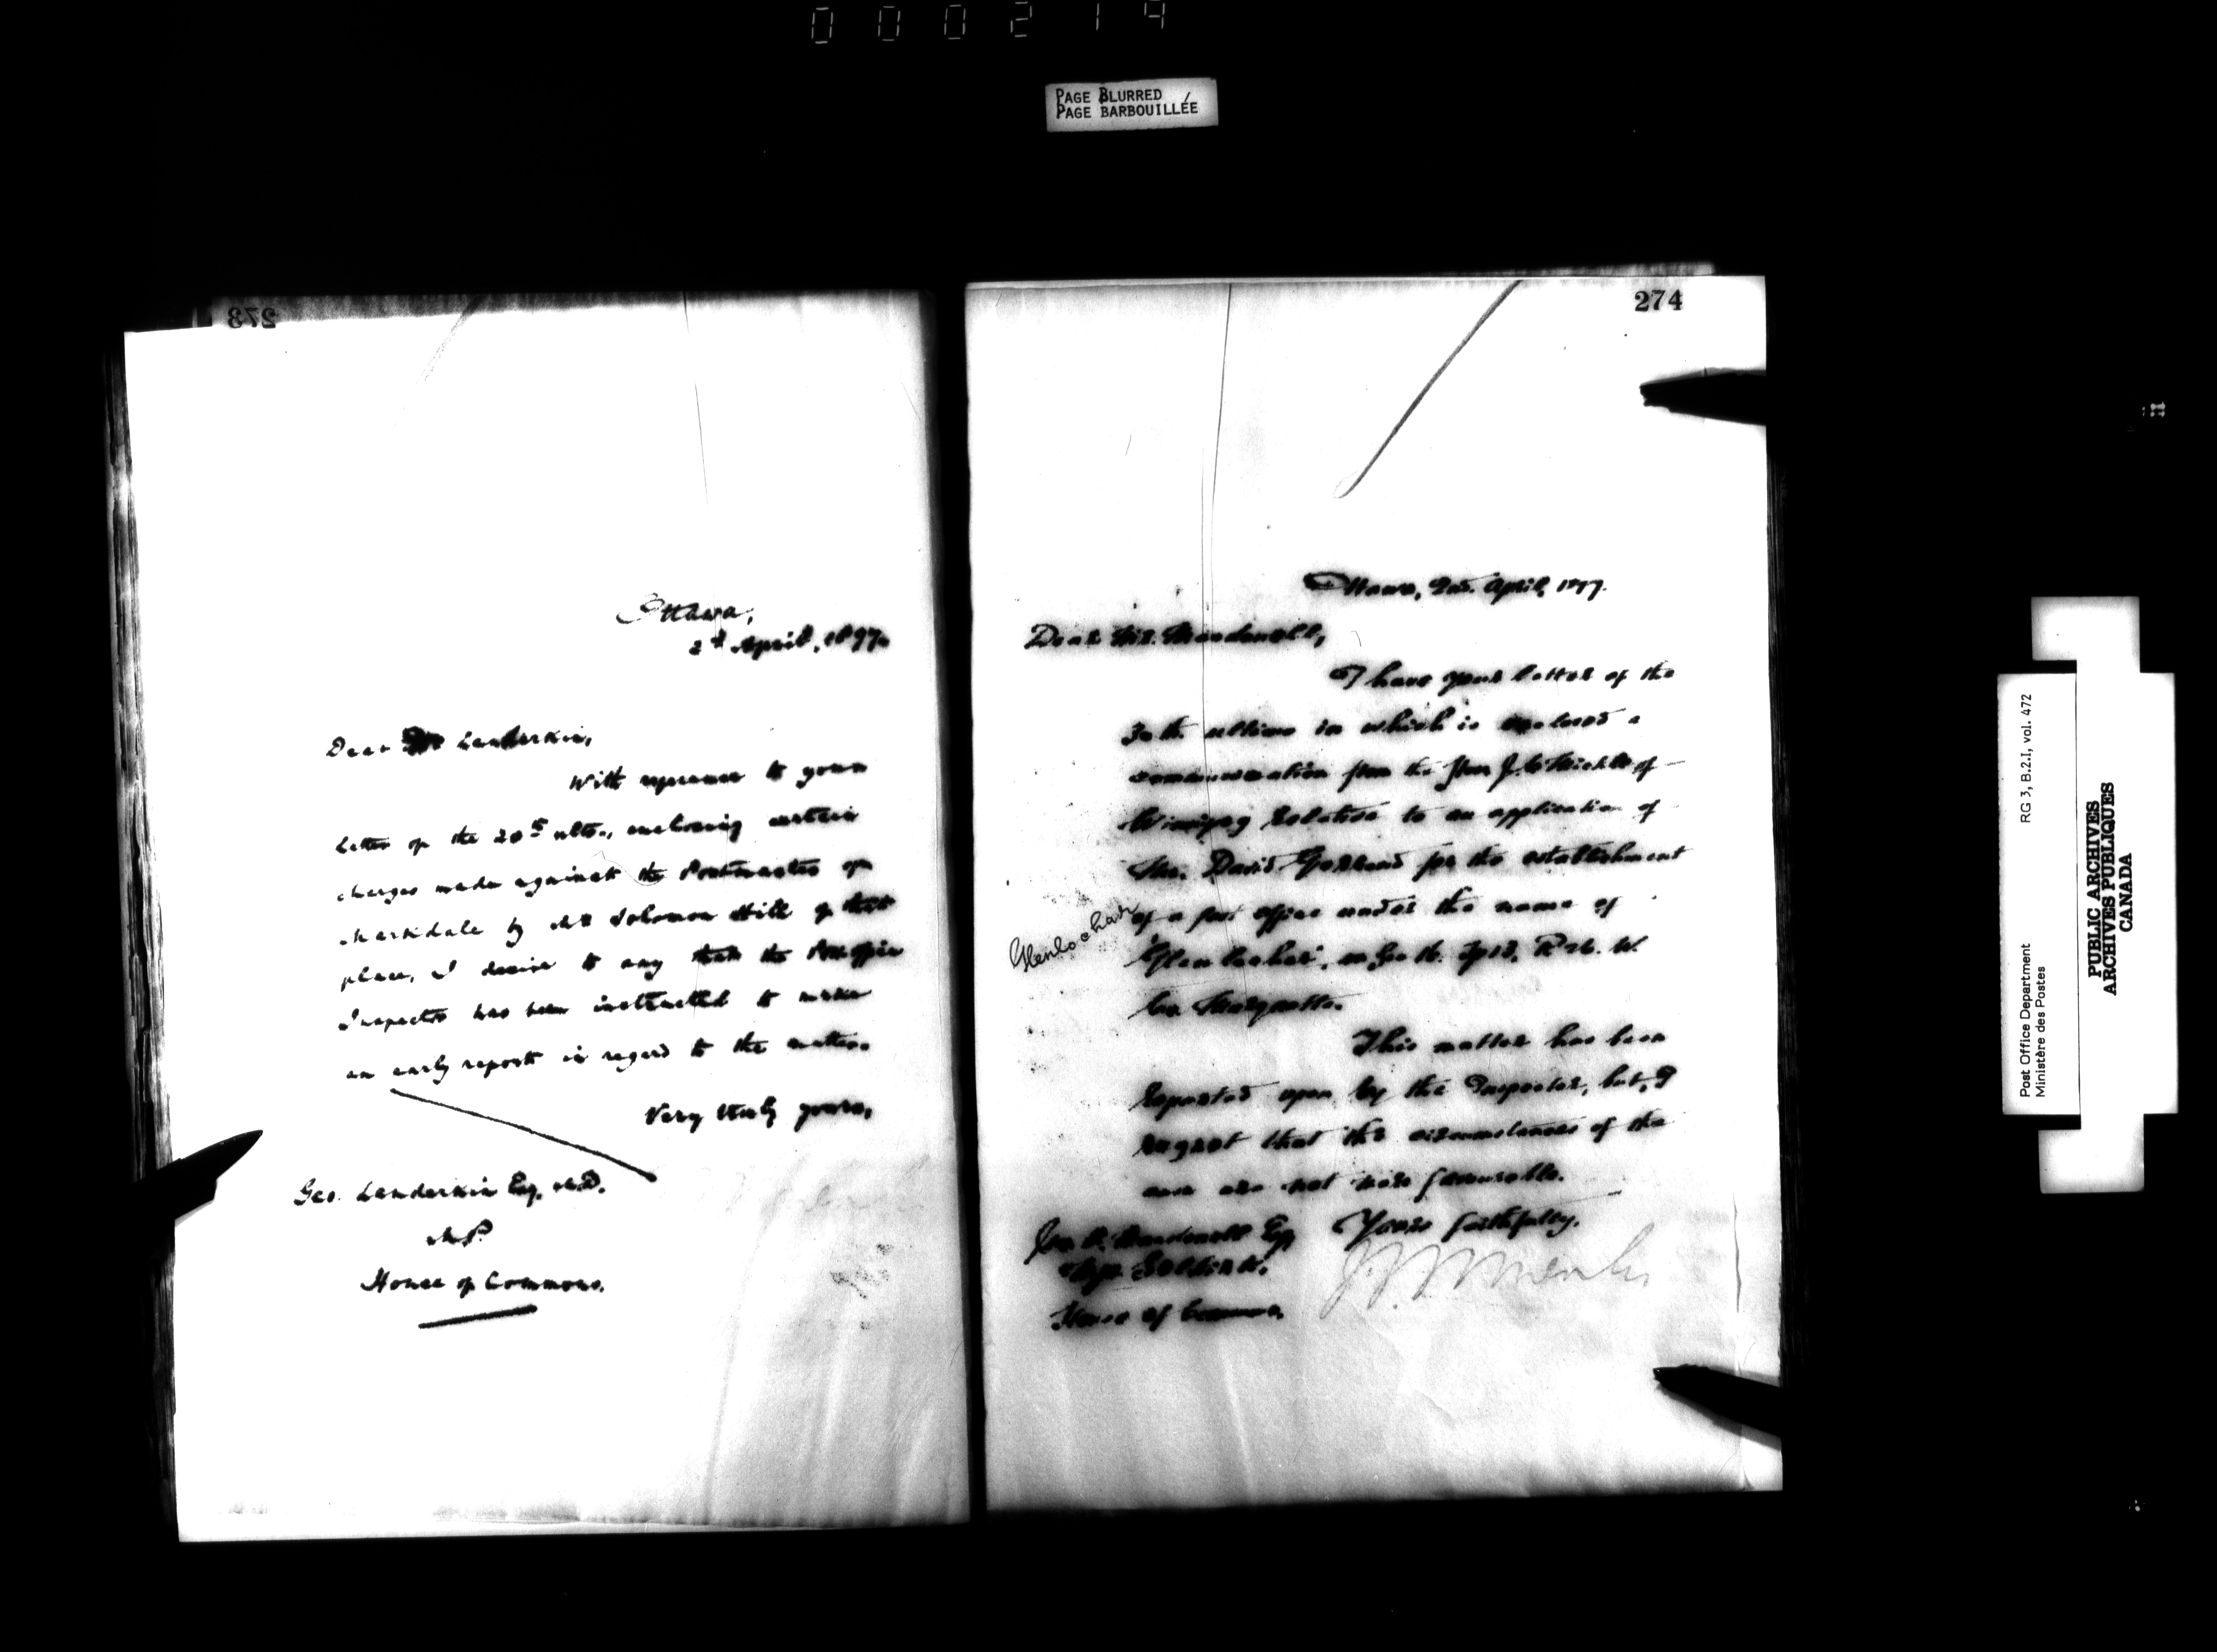 000214
PAGE BLURRED
PAGE BARBOUILLÉE
273
Ottawa,
2d April, 1897.
Dear Landerkin,
With reference to your
letter of the 20th ulto., enclosing certain
charges made against the Postmaster of
Markdale by Mr Solomon Hill of that
place, I desire to say that the P.Office
Inspector has been instructed to make
an early report in regard to the matter.
Very truly yours,
Geo. Landerkin Esq. M.D.
M.P.
House of Commons.
274
Ottawa, 2nd. April, 1897.
Dear Mr. Macdonell,
I have your letter of the
ultimo in which is enclosed a
communication from the Hon J. of
Winnipeg relative to an application of
Mr. David for the establishment
of a post office under the name of
Glenlochar
"Glenlochar", on Sec 16. Tp 13, R 26. W.
Co. Marquette.
This matter has been
reported upon by the Inspector, but, I
regret that the circumstances of the
case are not more favourable.
Yours faithfully.
Macdonell Esq
M.P. Selkirk.
House of Commons.
Post Office Department RG 3, B.2.I, vol. 472
Ministère des Postes
PUBLIC ARCHIVES
ARCHIVES PUBLIQUES
CANADA